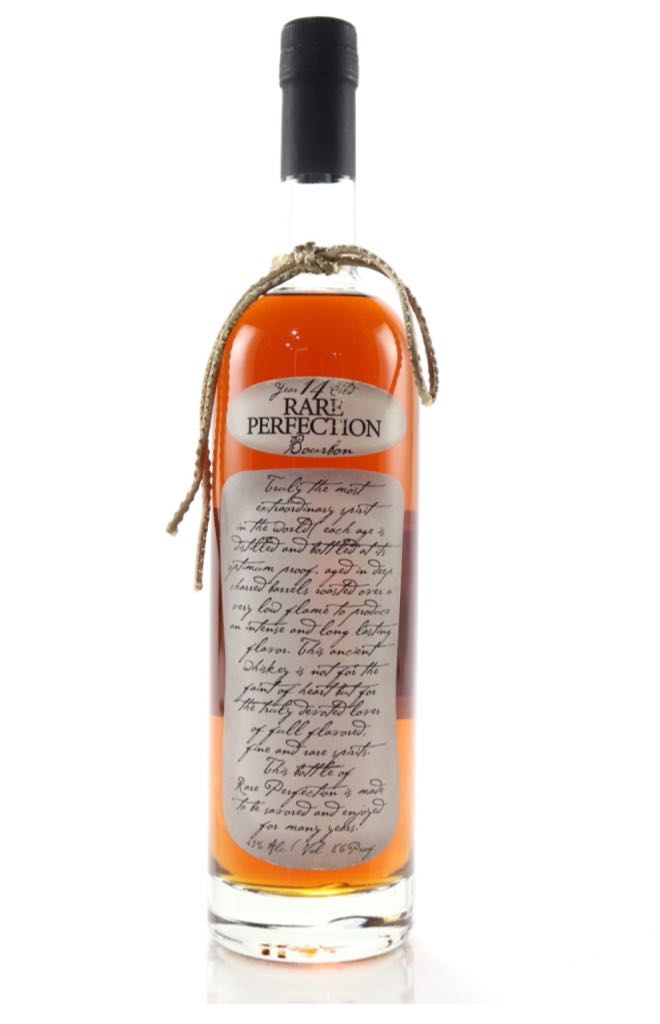 Year 14 Old
RARE
PERFECTION
Bourbon
Truly the most
extraordinary spirit
in the world( each age is
distilled and bottled at its
optimum proof, aged in deep
charred barrels roasted over a
very low flame to produce
an intense and long lasting
flavor. This ancient
whiskey is not for the
faint of heart but for
the truly devoted lover
of full flavored,
fine and rare spirits.
This bottle of
Rare Perfection is made
to be savored and enjoyed
for many years.
43% Alc./Vol. 86 Proof